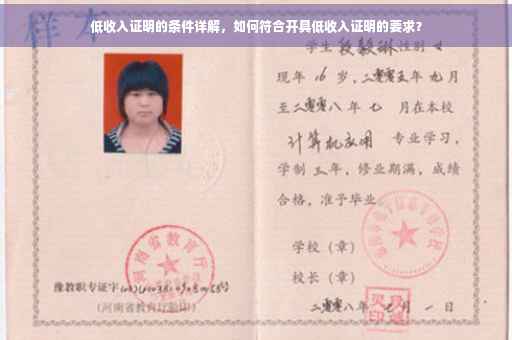 低收入证明的条件详解，如何符合开具低收入证明的要求？
样本
学生段毅琳性别女
现年16岁，二零零五年九月
至二零零八年七月在本校
计算机应用 专业学习，
学制三年，修业期满，成绩
合格，准予毕业
学校（章）
河南省教育厅
校长（章）
豫教职专证字
(河南省教育厅验印)
二零零八年七月一日